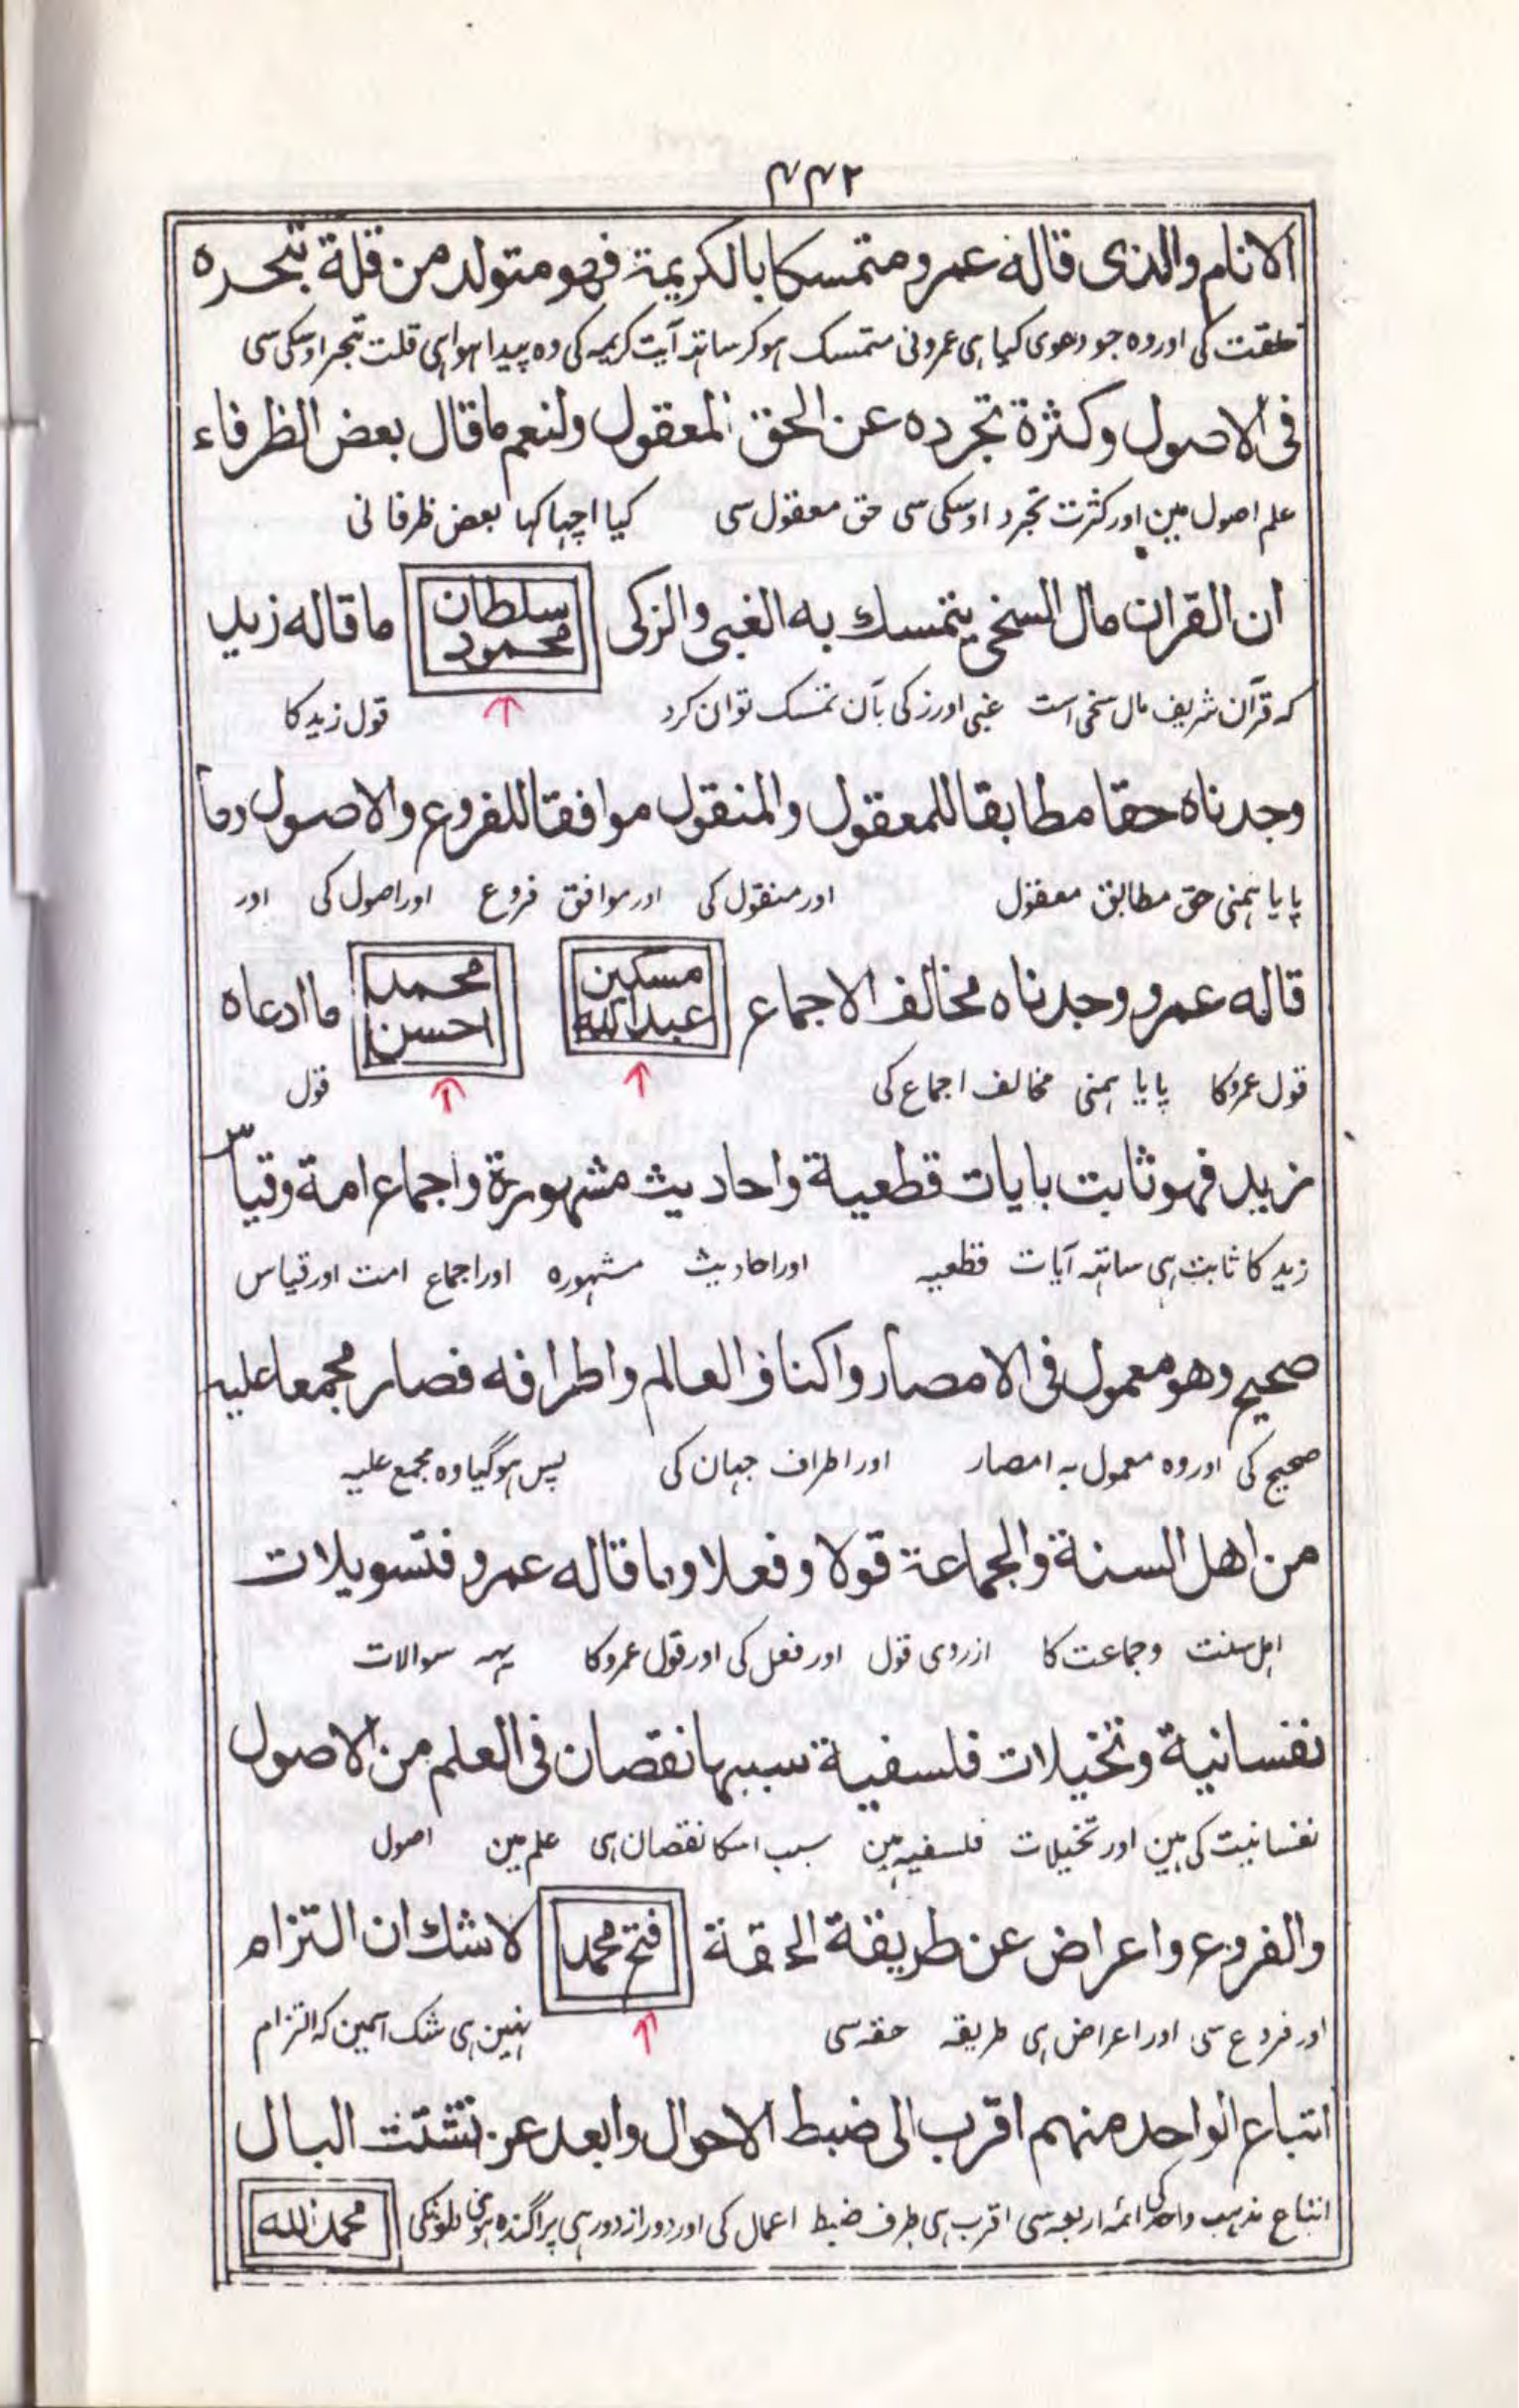 ۴۴۲
الانام والذی قاله عمرو متمسکا بالکریمة فهو متولد من قلة تبحره
خلقت کی اور وہ جو دعوی کیا ہی عمرو نی متمسک ہو کر ساتہہ آیت کریمہ کی وہ پیدا ہوا ہی قلت تبحر اوسکی سی
فی الاصول وکثرة تجرده عن الحق المعقول ولنعم ماقال بعض الظرفاء
علم اصول مین اور کثرت تجرد اوسکی سی حق معقول سی کیا اچہا کہا بعض ظرفا نی
ان القران مال السخی یتمسك به الغبی والزکی سلطان محمود ماقاله زید
کہ قرآن شریف مال سخی است غبی اور زکی بآن تمسک توان کرد قول زید کا
وجدناه حقا مطابقا للمعقول والمنقول موافقا للفروع والاصول وما
پایا ہمنی حق مطابق معقول اور منقول کی اور موافق فروع اور اصول کی اور
قاله عمرو وجدناه مخالف الاجماع مسکین عبدالله محمد احسن ما ادعاه
قول عمرو کا پایا ہمنی مخالف اجماع کی قول
زید فهو ثابت بایات قطعیة واحادیث مشهورة واجماع امة وقیاس
زید کا ثابت ہی ساتہہ آیات قطعیہ اور احادیث مشہورہ اور اجماع امت اور قیاس
صحیح وهو معمول فی الامصار واکناف العالم واطرافه فصار مجمعا علیه
صحیح کی اور وہ معمول بہ امصار اور اطراف جہان کی پس ہو گیا وہ مجمع علیہ
من اهل السنة والجماعة قولا وفعلا وما قاله عمرو فتسویلات
اہل سنت وجماعت کا ازروی قول اور فعل کی اور قول عمرو کا یہہ سوالات
نفسانیة وتخیلات فلسفیة سببها نقصان فی العلم من الاصول
نفسانیت کی ہین اور تخیلات فلسفیہ ہین سبب اسکا نقصان ہی علم مین اصول
والفروع واعراض عن طریقة الحقة فتح محمد لاشك ان التزام
اور فروع سی اور اعراض ہی طریقہ حقہ سی نہین ہی شک اسمین کہ التزام
اتباع الواحد منهم اقرب الی ضبط الاحوال وابعد عن تشتت البال
اتباع مذہب واحد کی ائمہ اربعہ سی اقرب ہی طرف ضبط اعمال کی اور دور از دور ہی پراگندہ ہونی دلونکی محمد الله